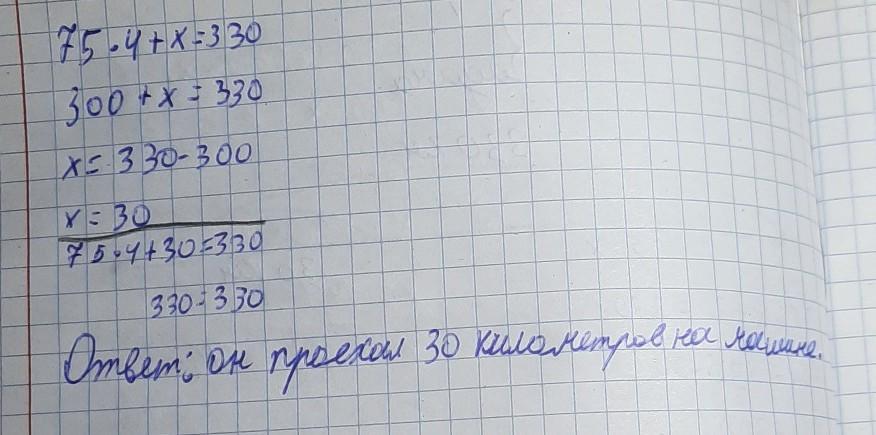 75·4+x=330
300+x=330
x=330-300
x=30
75·4+30=330
330=330
Ответ: он проехал 30 километров на машине.